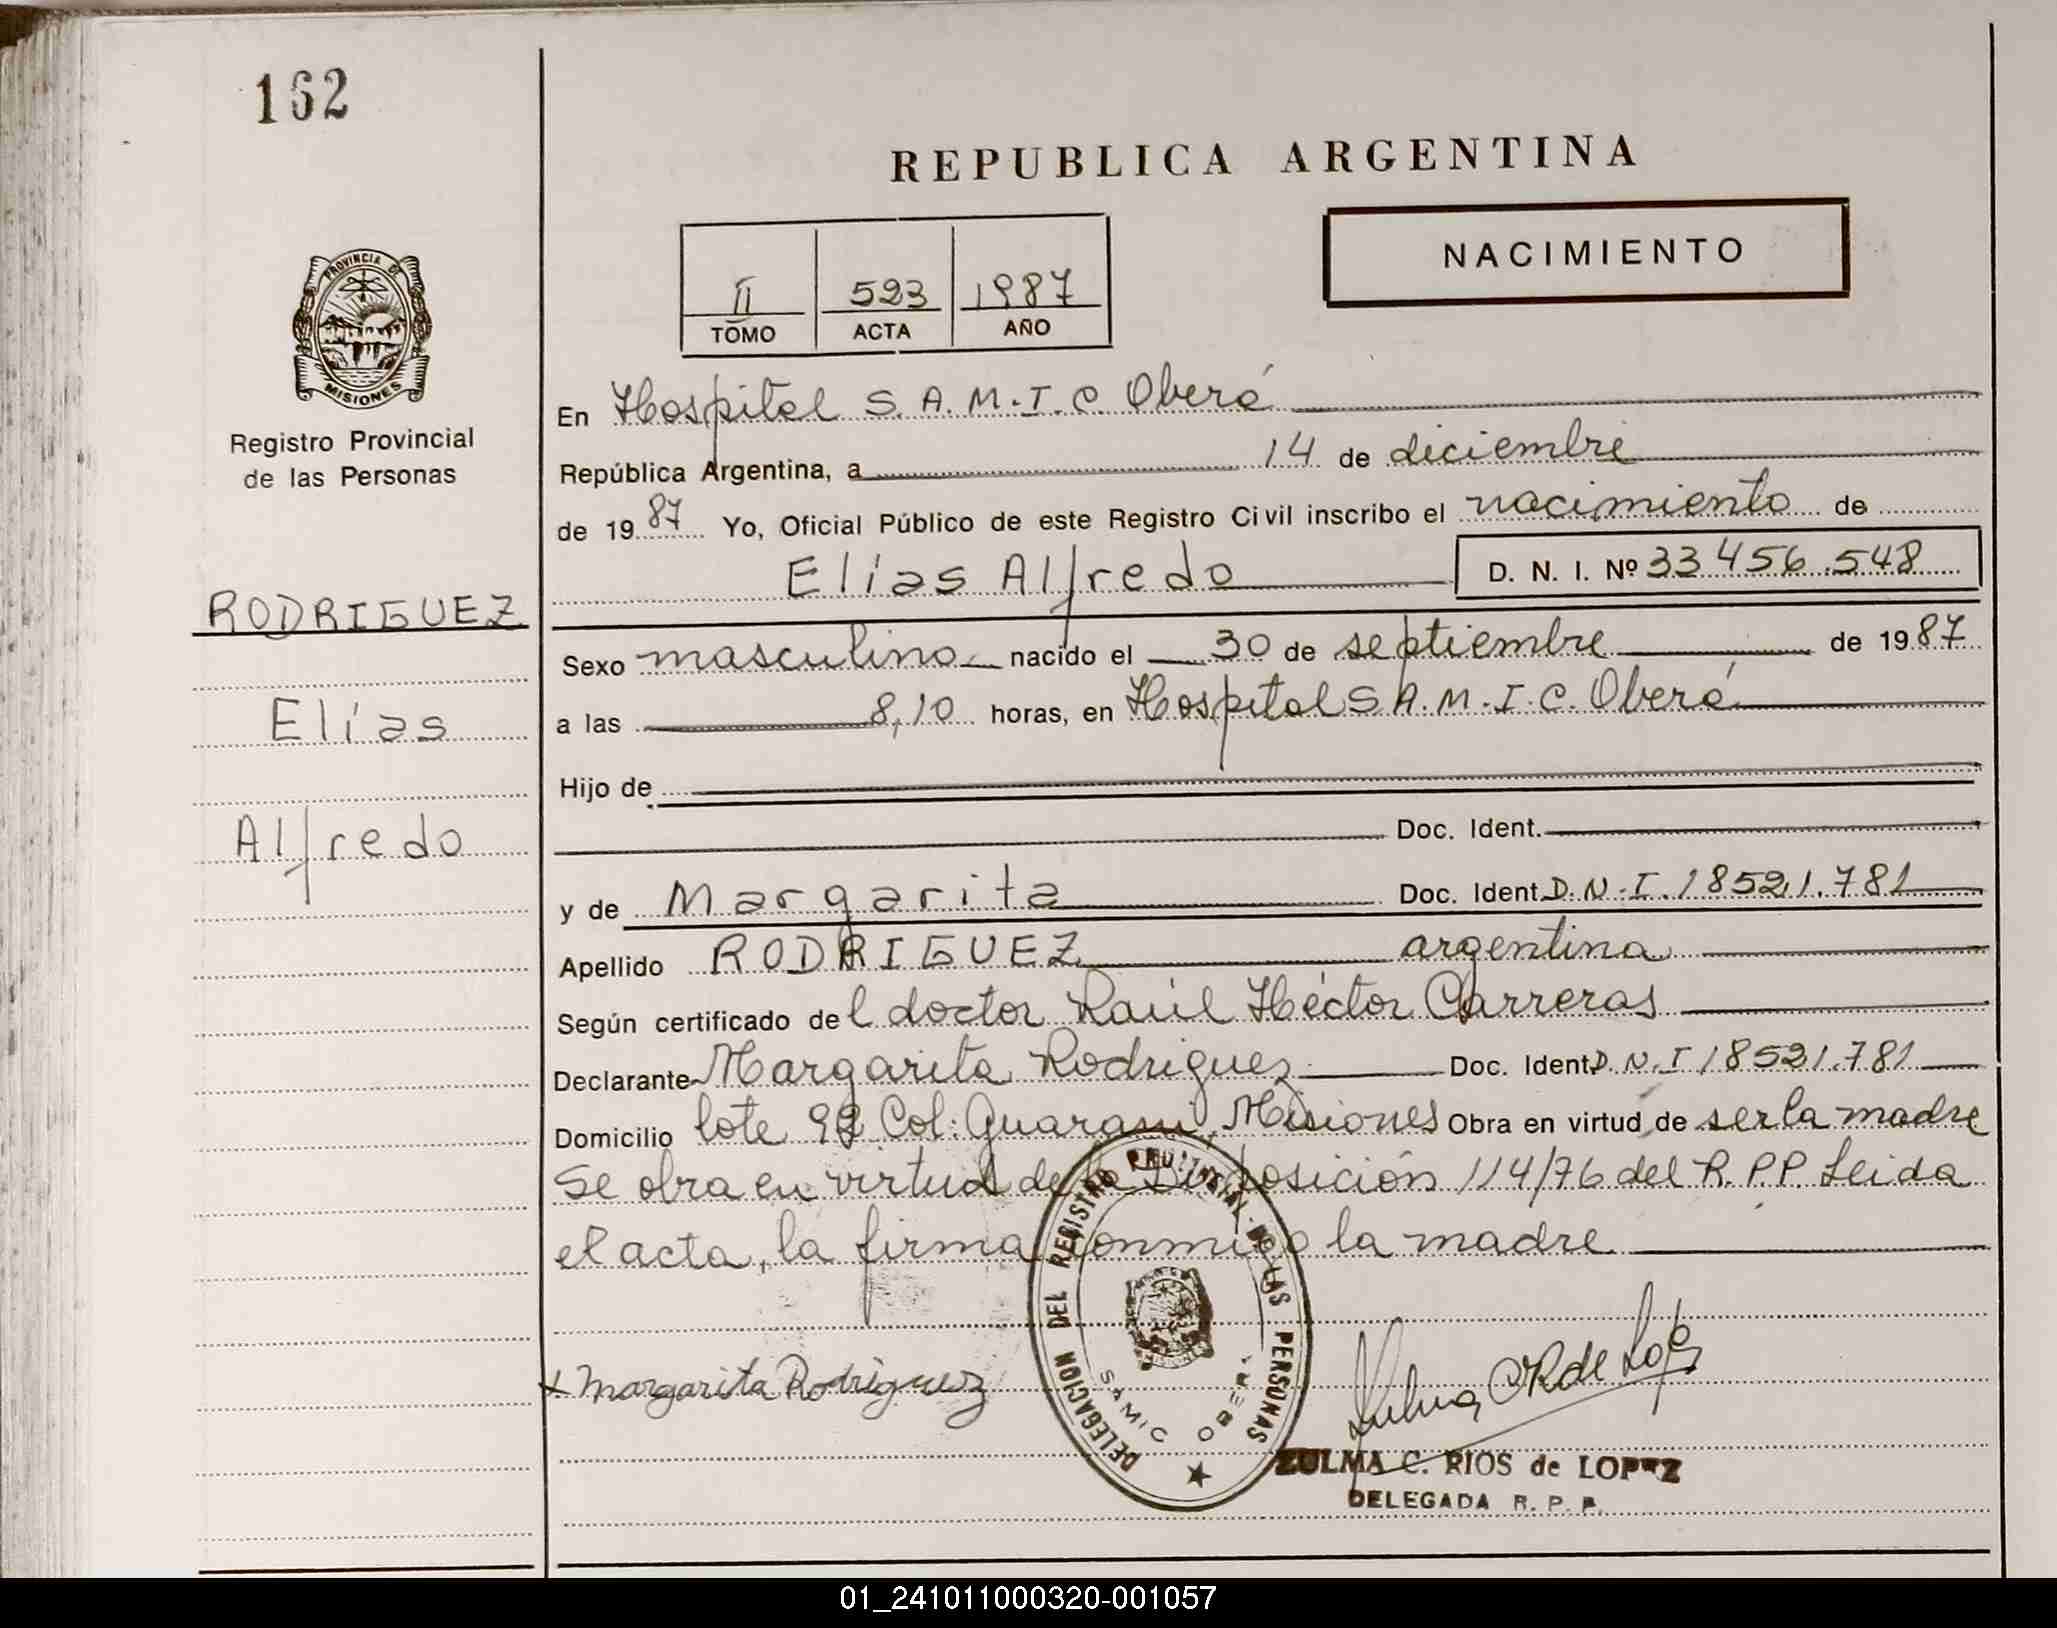 162
REPUBLICA ARGENTINA
NACIMIENTO
II 523 1987
TOMO ACTA AÑO
PROVINCIA DE
MISIONES
Registro Provincial
de las Personas
RODRIGUEZ
Elías
Alfredo
En Hospital S.A.M.I.C. Oberá
República Argentina, a 14 de diciembre
de 1987 Yo, Oficial Público de este Registro Civil inscribo el nacimiento de
Elías Alfredo D. N. I. Nº 33456.548
Sexo masculino nacido el 30 de septiembre de 1987
a las 8,10 horas, en Hospital S.A.M.I.C. Oberá
Hijo de
Doc. Ident.
y de Margarita Doc. Ident. D.N.I. 18521.781
Apellido RODRIGUEZ argentina
Según certificado del doctor Raúl Héctor Carreras
Declarante Margarita Rodriguez Doc. Ident. D.N.I 18521.781
Domicilio lote Col: Guarani, Misiones Obra en virtud de ser la madre
Se obra en virtud de la Disposición 114/76 del R.P.P. Leida
el acta, la firma conmigo la madre
x Margarita Rodriguez
DELEGACION DEL REGISTRO PROVINCIAL DE LAS PERSONAS
SAMIC OBERA
Zulma C R de López
ZULMA C. RIOS de LOPEZ
DELEGADA R. P. P.
01_241011000320-001057